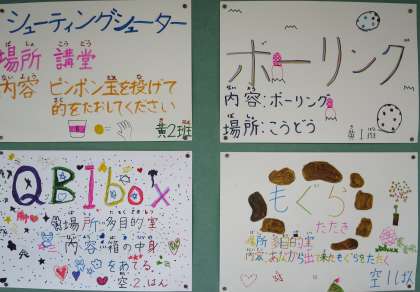 シューティングシューター
場所 講堂
内容 ピンポン玉を投げて
的をたおしてください
黄2班
ボーリング
内容:ボーリング
場所:こうどう
黄1班
QBIbox
場所 多目的室
内容 箱の中身
をあてる。
空2はん
もぐら
たたき
場所 多目的室
内容 あなから出て来たもぐらをたたく
空11班